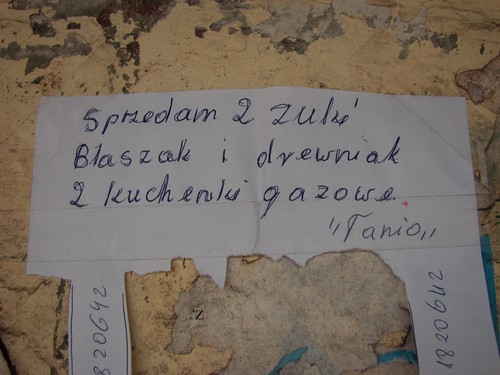 Sprzedam 2 żuki
Błaszak i drewniak
2 kuchenki gazowe
"Tanio"
1820642
1820642